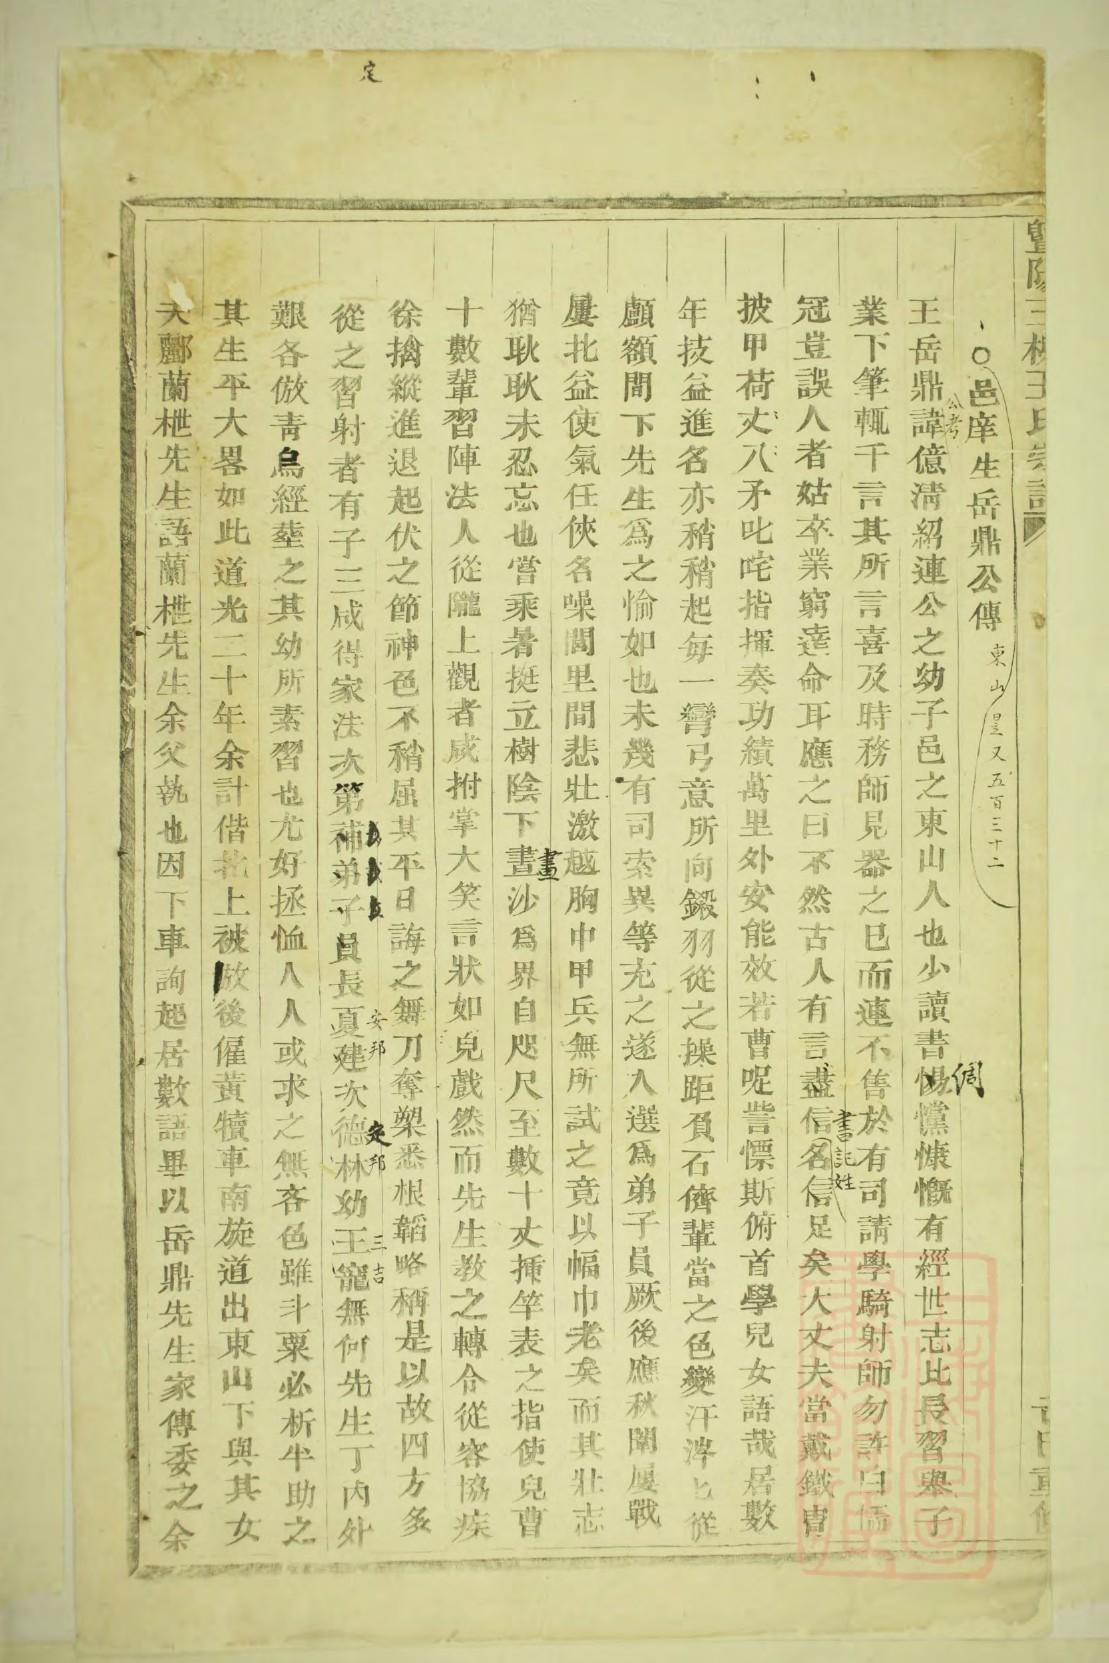 定
邑庠生岳鼎公傳
東山 又五百三十二
王岳鼎諱億清紹連公之幼子邑之東山人也少讀書惕儻慷慨有經世志比長習舉子
公考
倜
業下筆輒千言其所言喜及時務師見器之已而連不售於有司請學騎射師勿許曰儒
冠豈誤人者姑卒業窮達命耳應之曰不然古人有言盡信名信足矣大丈夫當戴鐵冑
書記姓
披甲荷丈八矛叱咤指揮奏功績萬里外安能效若曹呢訾慄斯俯首學兒女語哉居數
年技益進名亦稍稍起每一彎弓意所向鎩羽從之操距負石儕輩當之色變汗涔匕從
顱額間下先生爲之愉如也未幾有司索異等充之遂入選爲弟子員厥後應秋闈屢戰
屢北益使氣任俠名噪閭里間悲壯激越胸中甲兵無所試之竟以幅巾老矣而其壯志
猶耿耿未忍忘也嘗乘暑挺立樹陰下晝沙爲界自咫尺至數十丈揷竿表之指使兒曹
畫
十數輩習陣法人從隴上觀者咸拊掌大笑言狀如兒戲然而先生教之轉令從容協疾
徐擒縱進退起伏之節神色不稍屈其平日誨之舞刀奪槊悉根韜略稱是以故四方多
從之習射者有子三咸得家法次第補弟子員長夏建次德林幼王寵無何先生丁內外
安邦
定邦
三吉
艱各倣靑烏經塟之其幼所素習也尤好拯恤人人或求之無吝色雖斗粟必析半助之
其生平大畧如此道光二十年余計偕北上被放後僱黃犢車南旋道出東山下與其女
夫酈蘭枻先生語蘭枻先生余父執也因下車詢起居數語畢以岳鼎先生家傳委之余